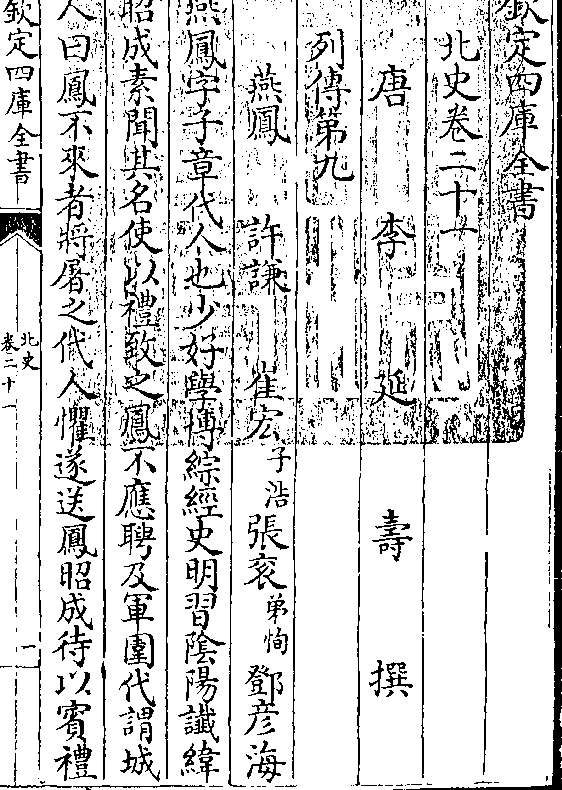 欽定四庫全書
北史卷二十一
唐 李 延 壽 撰
列傳第九
燕鳳 許謙 崔宏子浩 張袞弟恂 鄧彦海
燕鳳字子章代人也少好學博綜經史明習陰陽讖緯
昭成素聞其名使以禮致之鳳不應聘及軍圍代謂城
人曰鳳不來者將屠之代人懼遂送鳳昭成待以賓禮
欽定四庫全書
北史
卷二十一
一